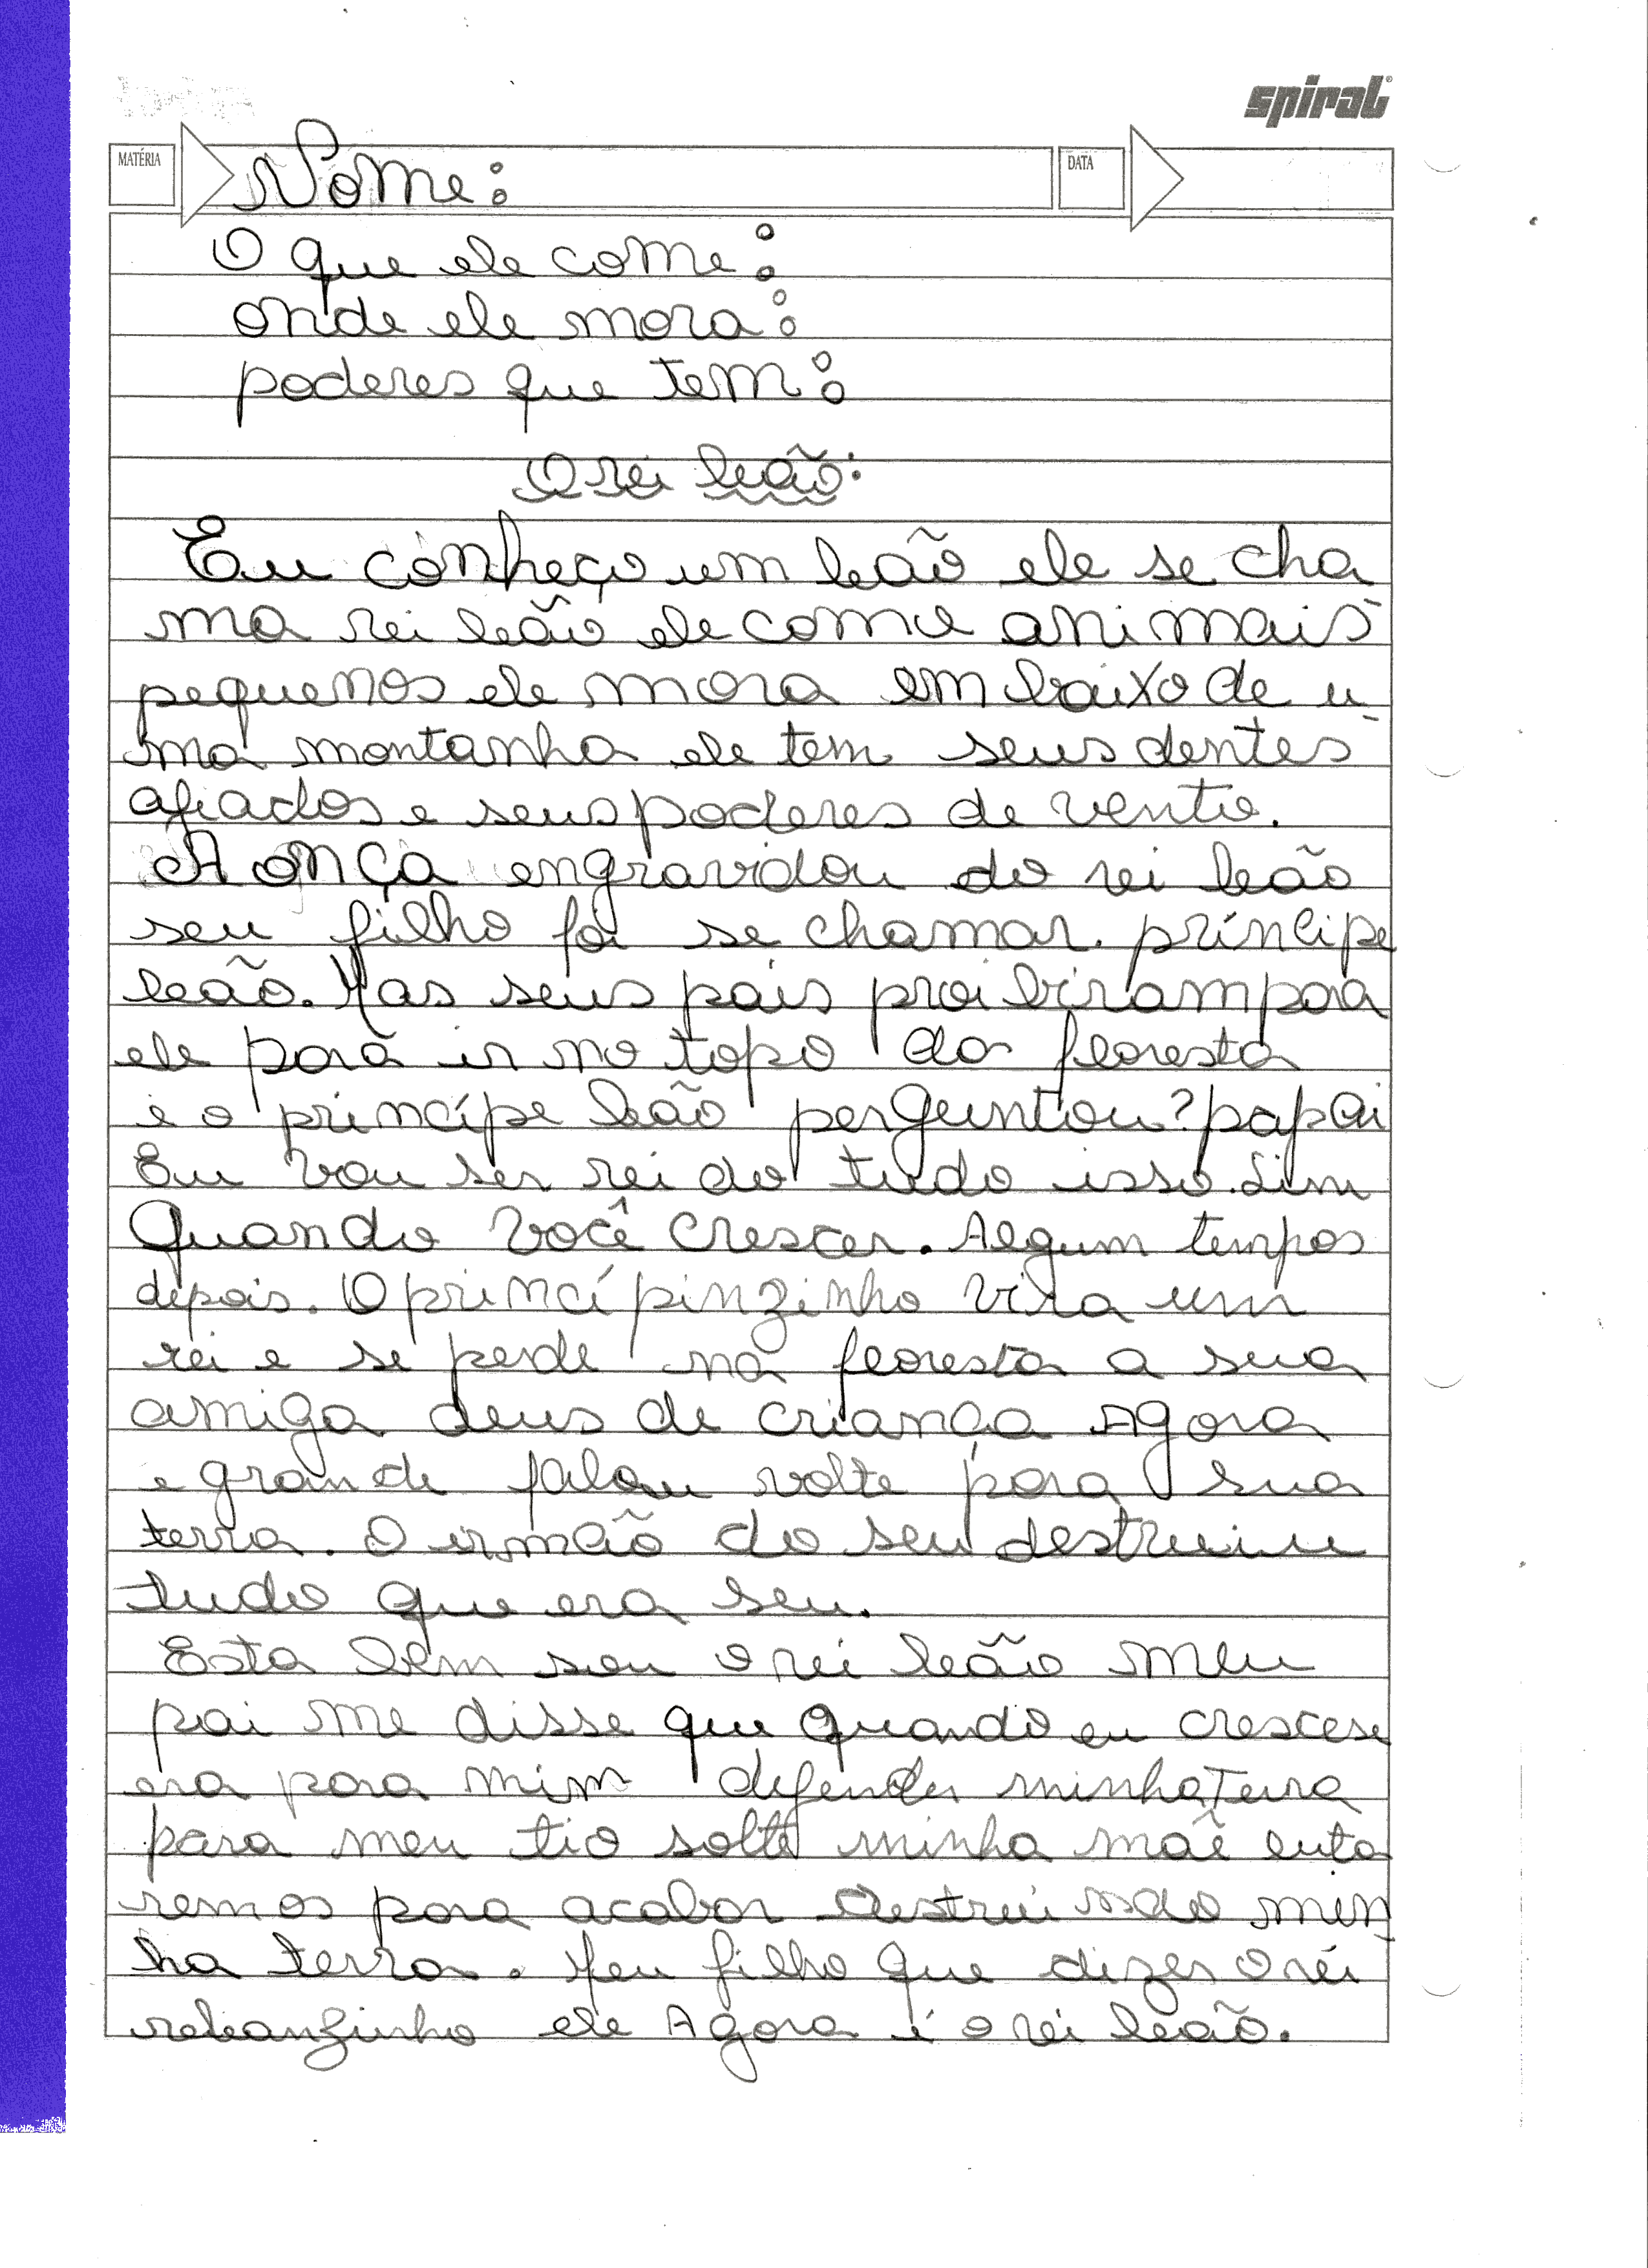 spiral
MATÉRIA Nome: DATA
O que ele come:
onde ele mora:
poderes que tem:
O rei leão:
Eu conheço um leão ele se cha
ma rei leão ele come animais
pequenos ele mora em baixo de u-
ma montanha ele tem seus dentes
afiados e seus poderes de vento.
A onça engravidou do rei leão
seu filho foi se chamar. príncipe
leão. Mas seus pais proibiram para
ele para ir no topo da floresta
e o princípe leão perguntou? papai
Eu vou ser rei do tudo isso. Sim
Quando você crescer. Algum tempos
depois. O princípinzinho vira um
rei e se perde na floresta a sua
amiga deus de criança Agora
e grande falou volte para sua
terra. O irmão do seu destruiu
tudo que era seu.
Esta bem sou o rei leão meu
pai me disse que quando eu crescese
era para mim defender minha Terra
para meu tio solte minha maê luta
remos para acabar destruindo min
ha terra. Meu filho que dizer o rei
rebanzinho ele Agora é o rei leão.